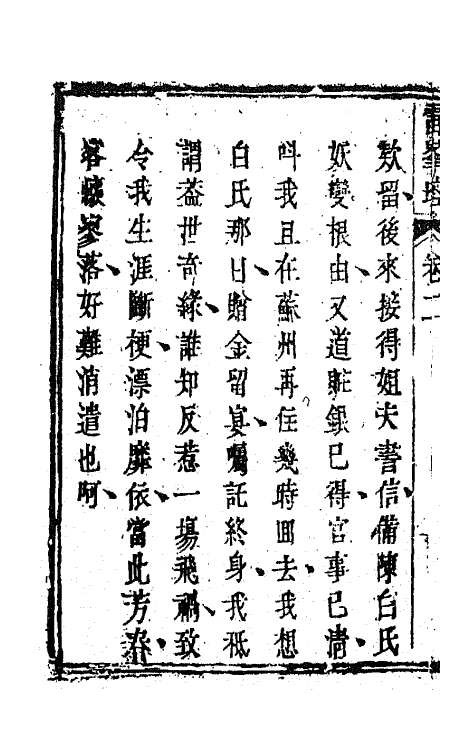 雷峯塔 卷二
欵留後來接得姐夫書信備陳白氏
妖變根由又道賍銀已得官事已淸
呌我且在蘇州再住幾時囬去我想
白氏那日贈金留宴囑託終身我秪
謂蓋世奇緣誰知反惹一塲飛禍致
令我生涯斷梗漂泊靡依當此芳春
客懷寥落好難消遣也呵